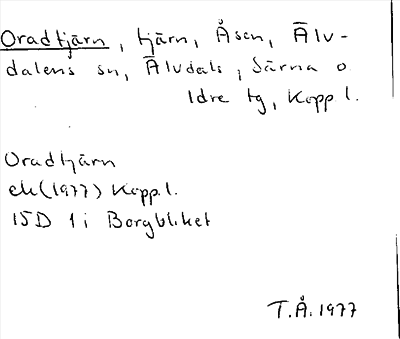 Oradtjärn, tjärn, Åsen, Älv-
dalens sn, Älvdals, Särna o
Idre tg, Kopp l.
Oradtjärn
ek (1977) Kopp. l.
15D 1 i Borgbliket
T.Å. 1977